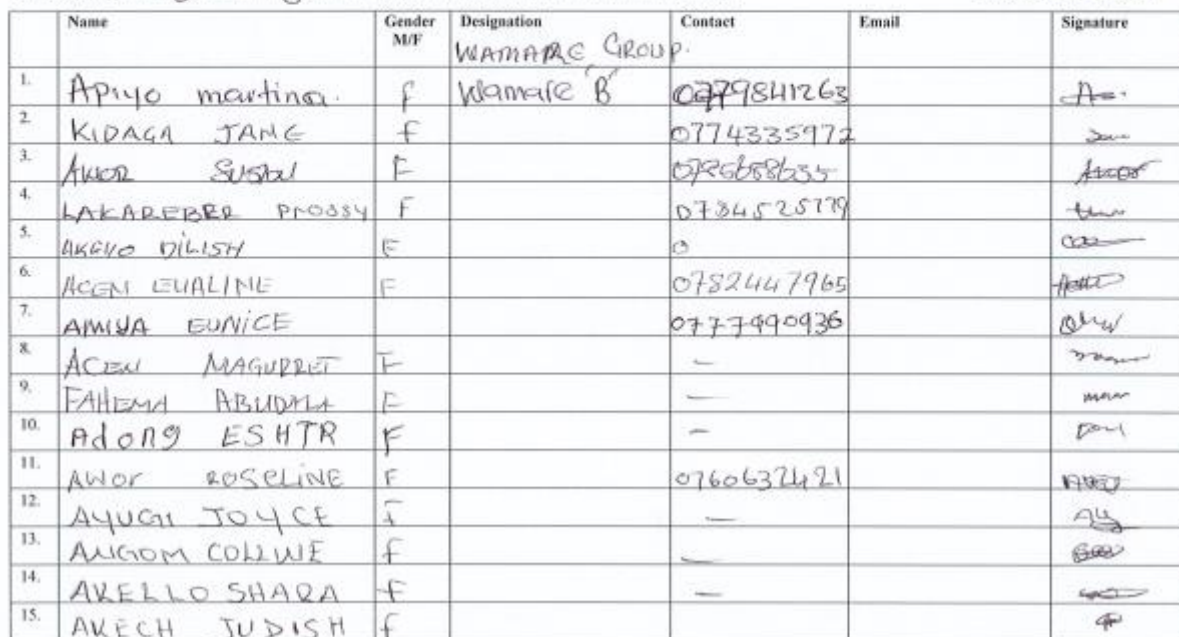 Name Gender Designation Contact Email Signature
M/F
WAMARE GROUP.
1. Apiyo martina. f Wamare "B" 0779841263
2. KIDAGA JANE f 0774335972
3. AWOR SUSAN F 0785688635
4. LAKAREBER PROSSY F 0784525779
5. AKEYO DILISH F 0
6. ACEN EVALINE F 0782447965
7. AMIYA EUNICE 0777490936
8. ACEN MAGURRET F -
9. FAHEMA ABUDALA F -
10. Adong ESHTR F -
11. AWOR ROSELINE F 0760632421
12. AYUGI JOYCE F -
13. ANGOM COLLINE f -
14. AKELLO SHARA f -
15. AKECH JUDISH f